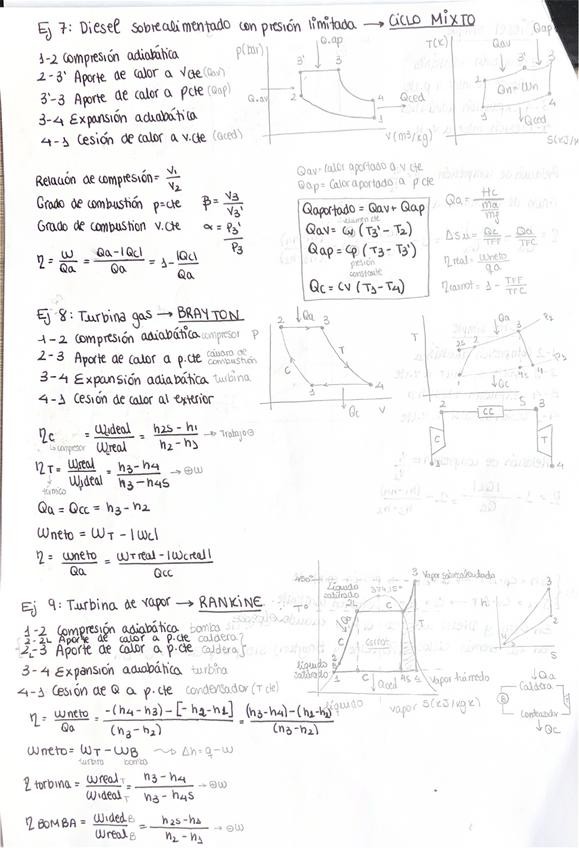 Ej 7: Diesel sobrealimentado con presión limitada → CICLO MIXTO
1-2 Compresión adiabática
2-3' Aporte de calor a Vcte (Qav)
3'-3 Aporte de calor a pcte (Qap)
3-4 Expansión adiabática
4-1 Cesión de calor a v.cte (Qced)
p(bar)
Q.ap
3' 3
Q.av 2
4
Qced
1
V(m3/kg)
T(K)
Qap
Qav
3' 3
2
Qn = Wn
4
1
Qced
S(KJ/
Relación de compresión = V1/V2
Grado de combustión p=cte β = V3/V3'
Grado de combustion v.cte α = P3'/P3
η = W/Qa = Qa-|Qc|/Qa = 1 - |Qc|/Qa
Qav=calor aportado a v.cte
Qap = Calor aportado a p cte
Qaportado = Qav + Qap
Qav = Cv (T3' - T2)
Qap = Cp (T3 - T3')
presión constante
Qc = CV (T1 - T4)
Qa = Hc / ma/mf
ηreal = wneto/qa
ηcarnot = 1 - TFF/TFC
Ej 8: Turbina gas → BRAYTON
1-2 compresión adiabática compresor
2-3 Aporte de calor a p.cte cámara de combustión
3-4 Expansión adiabática turbina
4-1 Cesión de calor al exterior
P
Qa
2 3
C T
1 4
Qc V
T
Qa
P2
3
2
2s
P1
4s 4
1
Qc
S
2 CC 3
C T
1 4
ηc = Wideal/Wreal = h2s-h1/h2-h1 → Trabajo⊖
compresor
ηT = Wreal/Wideal = h3-h4/h3-h4s → ⊕W
Qa = Qcc = h3-h2
Wneto = WT - |Wc|
η = wneto/Qa = WTreal - |Wcreal|/Qcc
Ej 9: Turbina de vapor → RANKINE
1-2 Compresión adiabática bomba
2-2L Aporte de calor a p.cte caldera
2L-3 Aporte de calor a p.cte caldera
3-4 Expansión adiabática turbina
4-1 Cesión de Q a p.cte condensador (T cte)
Líquido saturado
374,15°
3 Vapor sobrecalentado
T°
2L
C
Qa
T
carnot
Líquido saturado
2
1 C 4s 4 Vapor húmedo
Qced
líquido vapor S(KJ/kgK)
3
S
Qa
Caldera
B
T
Condensador
Qc
η = wneto/Qa = -(h4-h3) - [-h2-h1]/(h3-h2) = (h3-h4)-(h2-h1)/(h3-h2)
Wneto = WT - WB → Δh = q-w
turbina bomba
η turbina = WrealT/WidealT = h3-h4/h3-h4s → ⊕W
η BOMBA = WidealB/WrealB = h2s-h1/h2-h1 → ⊖W